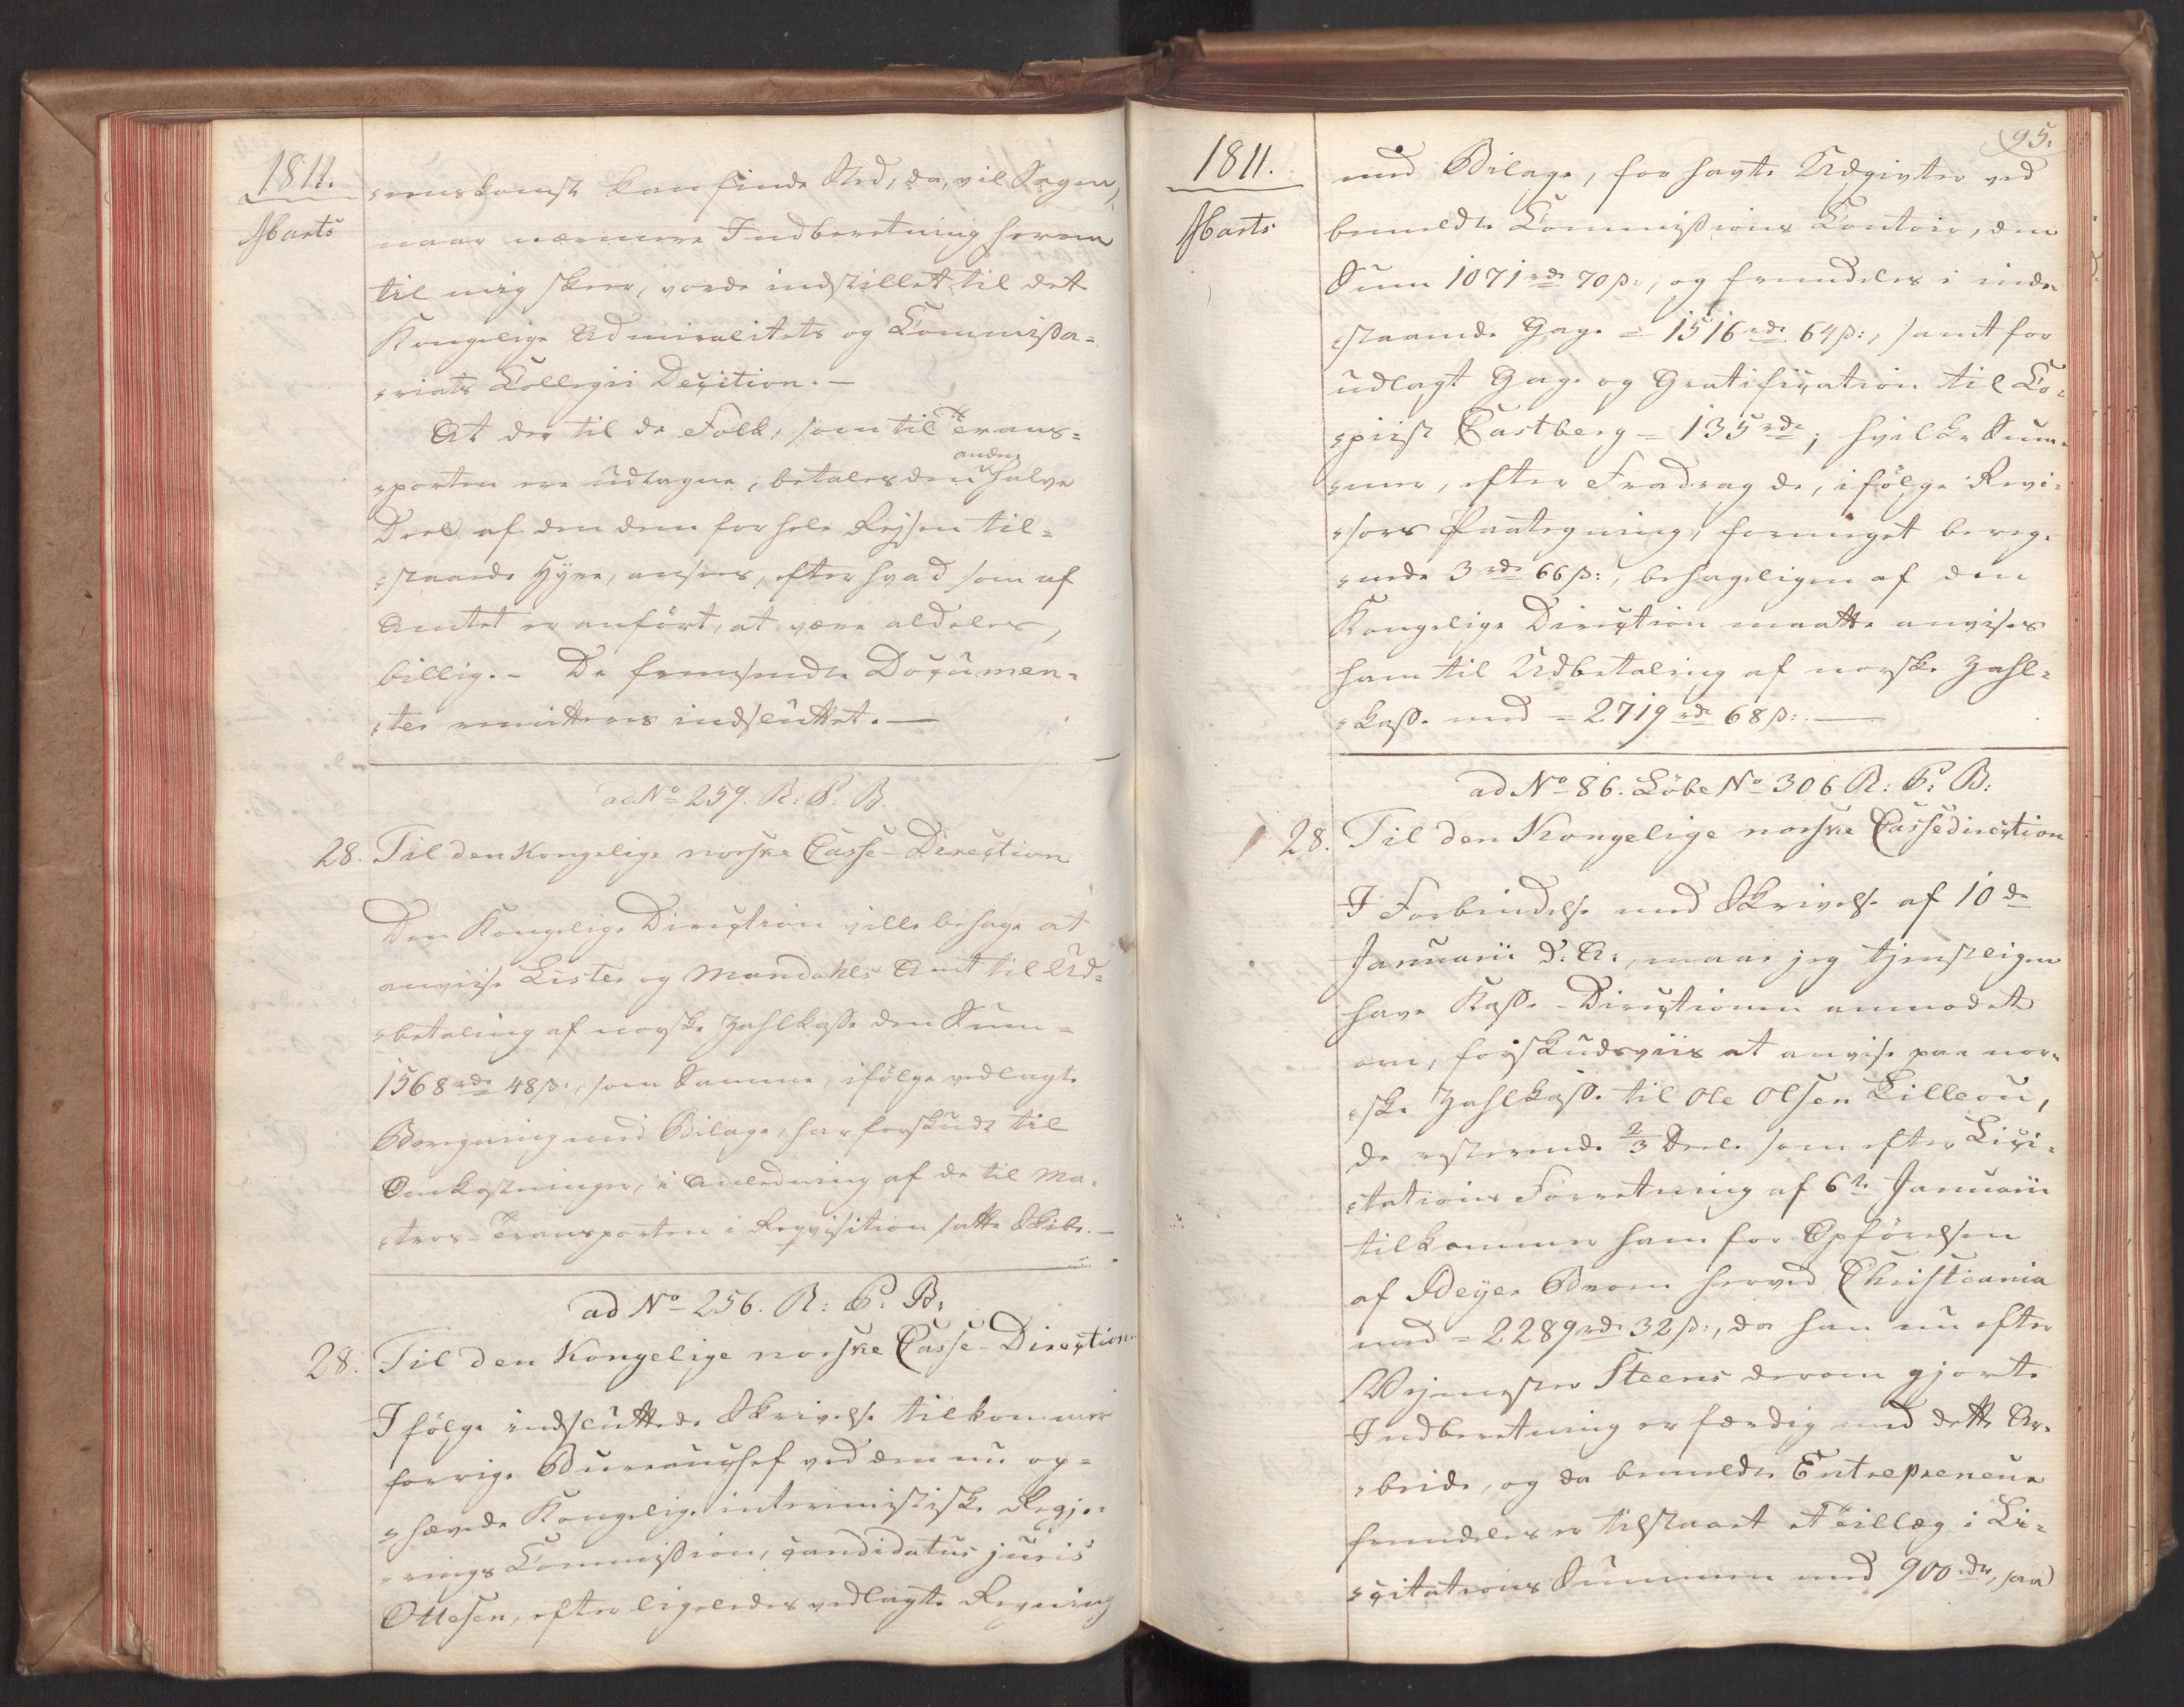 1811.
Marts
-enskomst kan finde Sted, da, vil Sagen,
naar nærmere Indberetning herom
til mig skeer, vorde indstillet til det
Kongelige Admiralitets og Commissa-
-riats Collegii Decition.-
At der til de Folk, som til Trans-
-porten ere udtagne, betales den anden halve
Deel af den dem for hele Rejsen til-
-staaede Hyre, ansees, efter hvad som af
Amtet er anført, at være aldeles,
billig.- De fremsendte Documen-
-ter remitteres indsluttet.-
ad No 259. R: P: B.
28. Til den Kongelige norske Casse-Direction
Den Kongelige Direction ville behage at
anviise Lister og Mandahls Amt til Ud-
-betaling af norske Zahlkasse den Sum-
1568 rdr 48 ß:, som Samme, ifølge vedlagte
Beregning med Bilage, har forskudt til
Omkostninger, i Anledning af de til Ma-
-tros-Transporten i Reqvisition satte Skibe.-
ad No 256. R: P: B:
28. Til den Kongelige norske Casse-Direction
I følge indsluttede Skrivelse tilkommer
forrige Bureauchef ved den nu op-
-hævede Kongelige interimistiske Regje-
-rings Commission, candidatus juris
Ottesen, efter ligeledes vedlagte Regning
95.
1811.
Marts
med Bilage, for havte Udgivter ved
bemeldte Commissions Contoir, den
Sum 1071 rdr 70 ß:, og fremdeles i inde-
-staaende Gage = 1516 rdr 64 ß:, samt for
udlagt Gage og Gratification til Co-
-piist Castberg = 135 rdr; hvilke Sum-
-mer, efter Fradrag de, ifølge Revi-
-sors Paategning, formeget bereg-
-nede 3 rdr 66 ß:, behageligen af den
Kongelige Direction maatte anvises
ham til Udbetaling af norske Zahl-
-kasse med = 2719 rdr 68 ß:.-
ad No 86. Løbe No 306 R: P: B:
28. Til den Kongelige norske Cassedirection
I Forbindelse med Skrivelse af 10de
Januarii d: A:, maae jeg tjenstligen
have Kasse-Directionen anmodet
om, forskudsviis at anvise paa nor-
-ske Zahlkasse til Ole Olsen Lilleou,
de resterende 2/3 Deele som efter Lici-
-tations Forretning af 6te Januarii
tilkommer ham for Opførelsen
af Beyer Broen herved Christiania
med = 2289 rdr 32 ß:, da han nu efter
Vejmester Steens derom gjorte
Indberetning er færdig med dette Ar-
-beide, og da bemeldte Entrepreneur
fremdeles er tilstaaet et Tillæg i Li-
-citations Summen med 900 rdr, saa